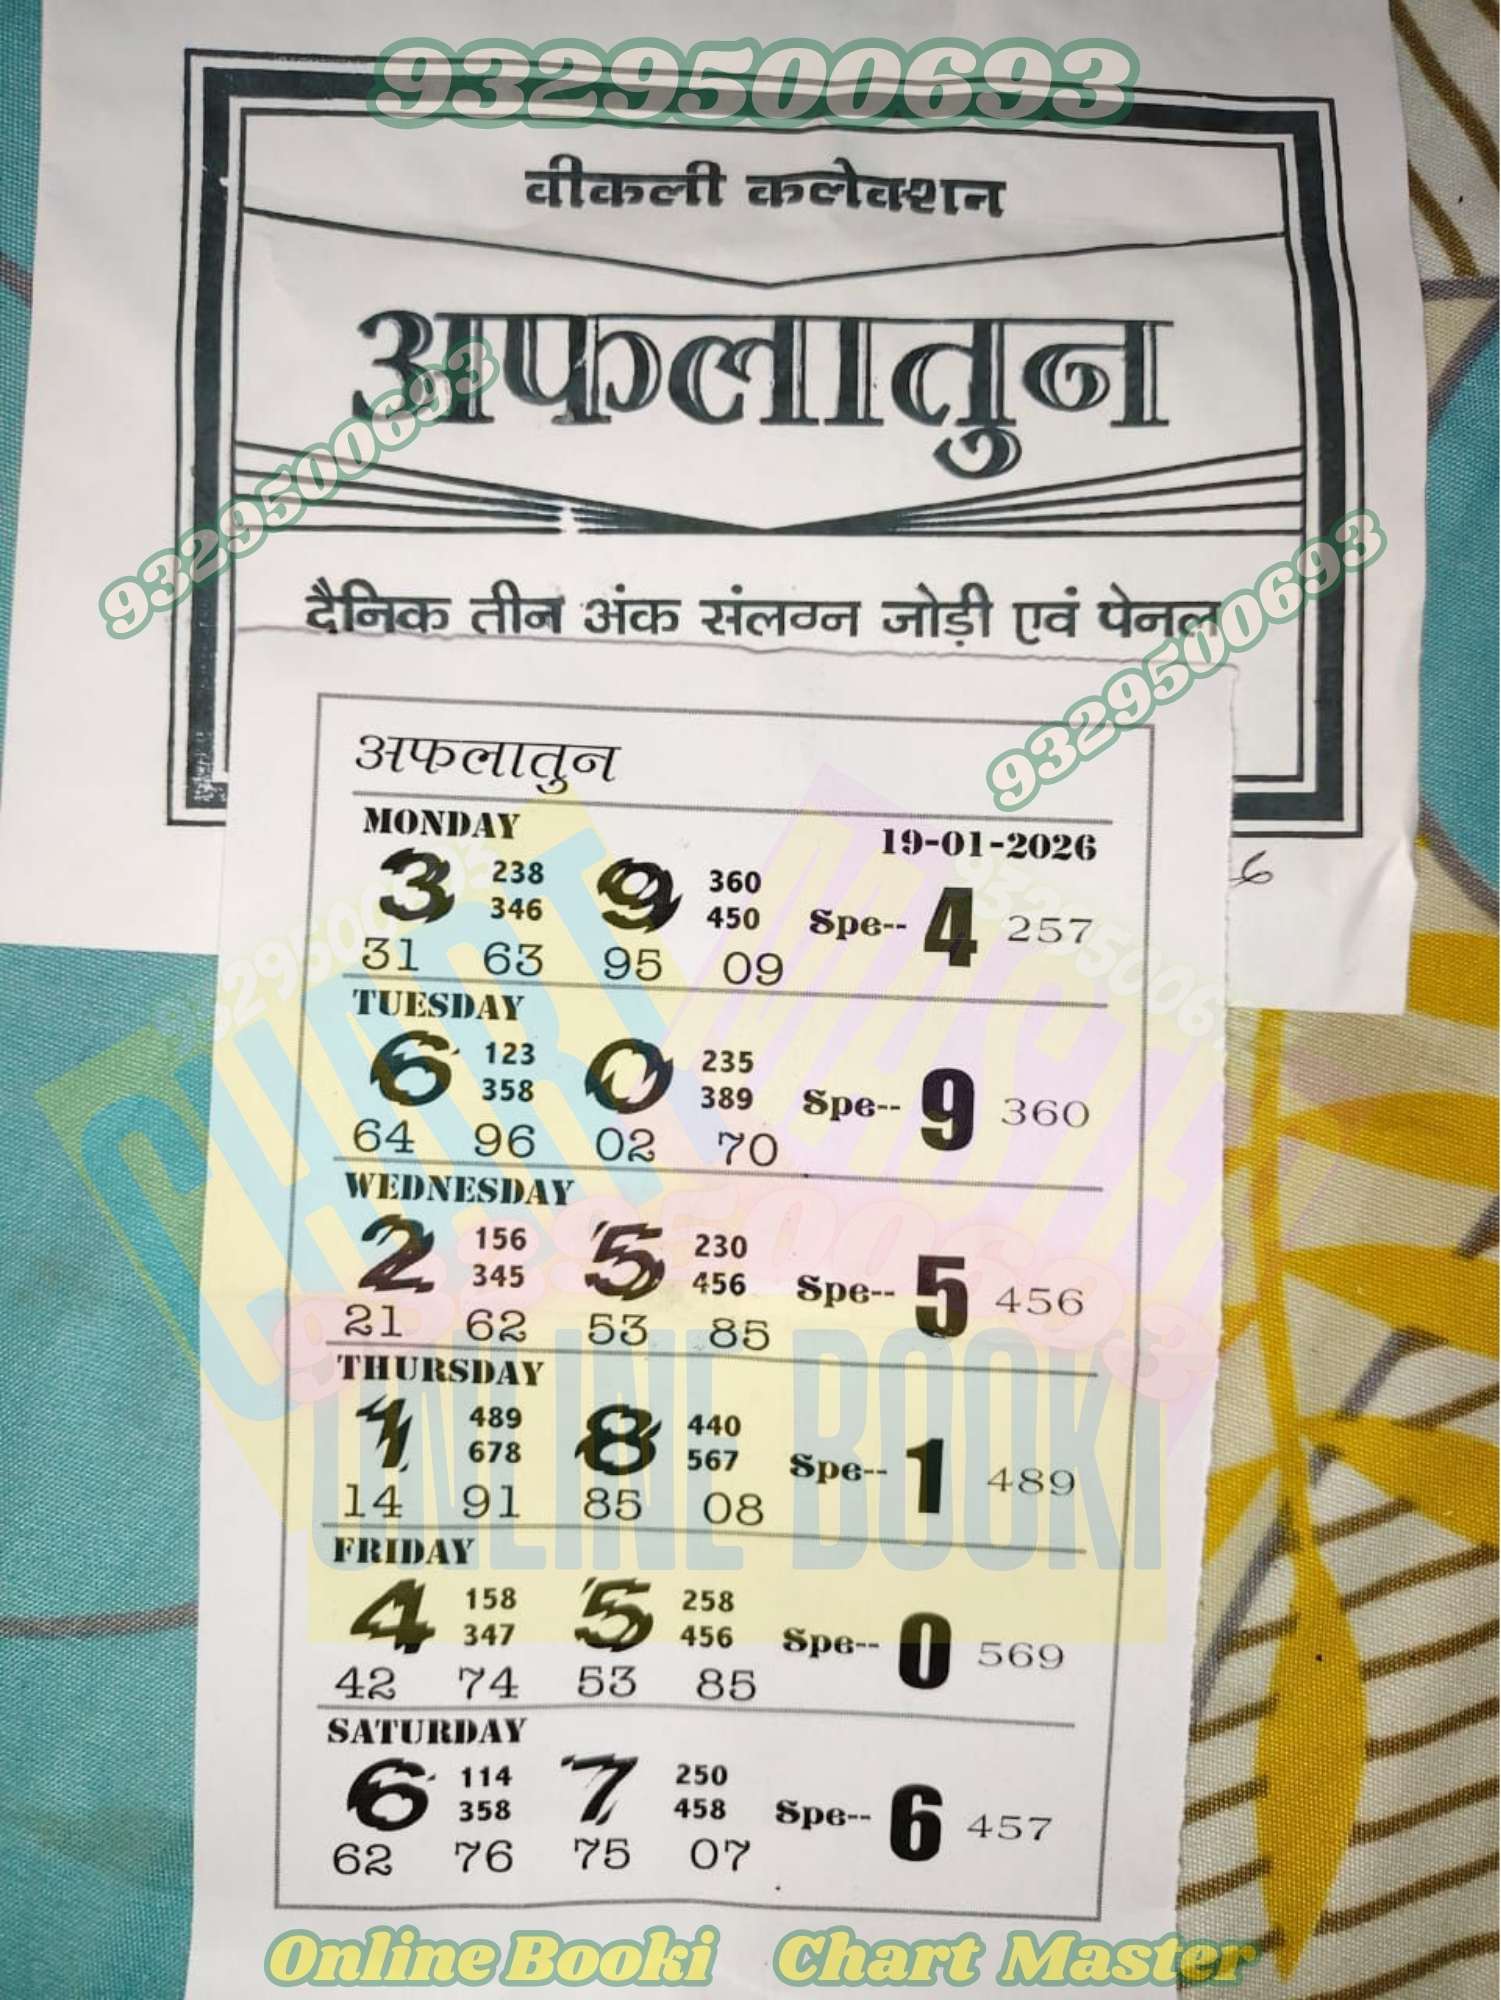 9329500693
वीकली कलेक्शन
अफलातुन
9329500693
9329500693
दैनिक तीन अंक संलग्न जोड़ी एवं पेनल
अफलातुन
MONDAY 19-01-2026
3 238 346 9 360 450 Spe-- 4 257
31 63 95 09
TUESDAY
6 123 358 0 235 389 Spe-- 9 360
64 96 02 70
WEDNESDAY
2 156 345 5 230 456 Spe-- 5 456
21 62 53 85
THURSDAY
1 489 678 8 440 567 Spe-- 1 489
14 91 85 08
FRIDAY
4 158 347 5 258 456 Spe-- 0 569
42 74 53 85
SATURDAY
6 114 358 7 250 458 Spe-- 6 457
62 76 75 07
CHART MASTER
9329500693
ONLINE BOOKI
Online Booki Chart Master